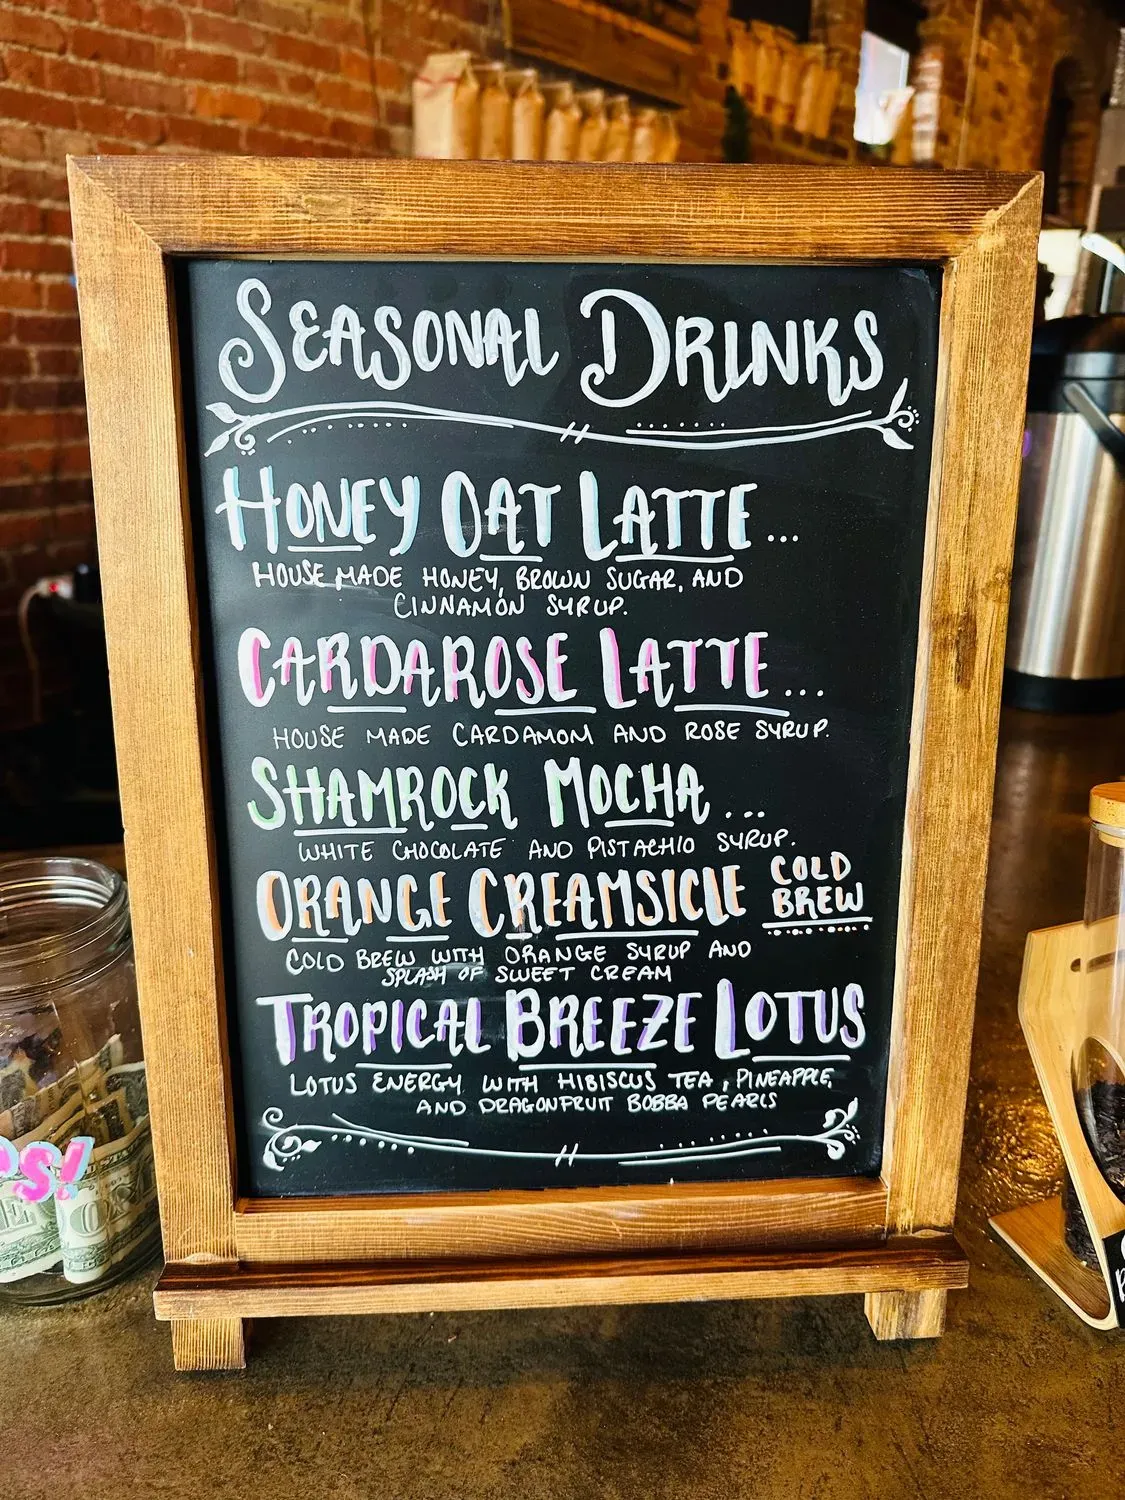 SEASONAL DRINKS
HONEY OAT LATTE...
HOUSE MADE HONEY, BROWN SUGAR, AND
CINNAMON SYRUP.
CARDAROSE LATTE...
HOUSE MADE CARDAMOM AND ROSE SYRUP.
SHAMROCK MOCHA...
WHITE CHOCOLATE AND PISTACHIO SYRUP.
ORANGE CREAMSICLE COLD
BREW
COLD BREW WITH ORANGE SYRUP AND
SPLASH OF SWEET CREAM
TROPICAL BREEZE LOTUS
LOTUS ENERGY WITH HIBISCUS TEA, PINEAPPLE,
AND DRAGONFRUIT BOBBA PEARLS